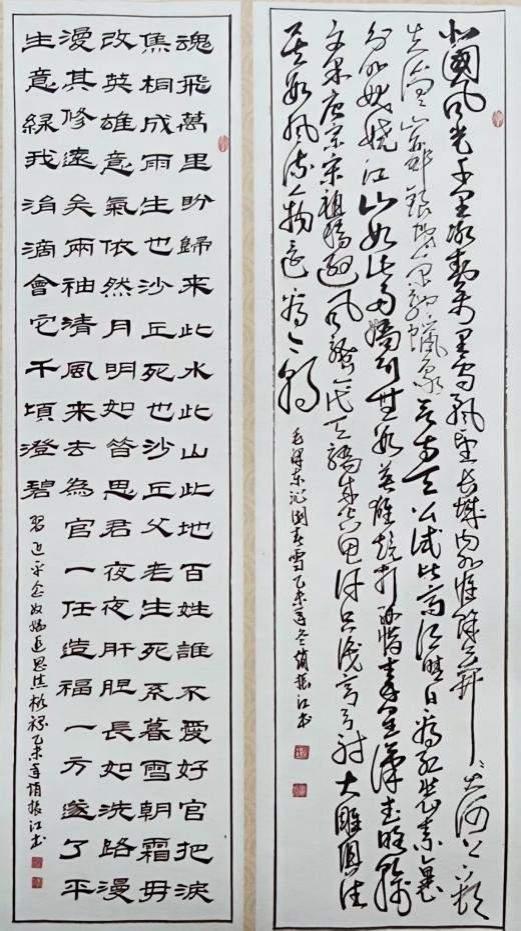 北國風光千里冰封萬里雪飄望長城內外惟餘莽莽大河上下頓
失滔滔山舞銀蛇原馳蠟象欲與天公試比高須晴日看紅裝素裹
分外妖嬈江山如此多嬌引無數英雄競折腰惜秦皇漢武略輸
文采唐宗宋祖稍遜風騷一代天驕成吉思汗只識彎弓射大雕俱往
矣數風流人物還看今朝
毛澤東沁園春雪乙未年冬趙振江书
魂飛萬里盼歸來此水此山此地百姓誰不愛好官把淚
焦桐成雨生也沙丘死也沙丘父老生死系暮雪朝霜毋
改英雄意氣依然月明如昔思君夜夜肝胆長如洗路漫
漫其修遠矣兩袖清風來去為官一任造福一方遂了平
生意綠我涓滴會它千頃澄碧
習近平念奴嬌追思焦裕祿乙未年趙振江书